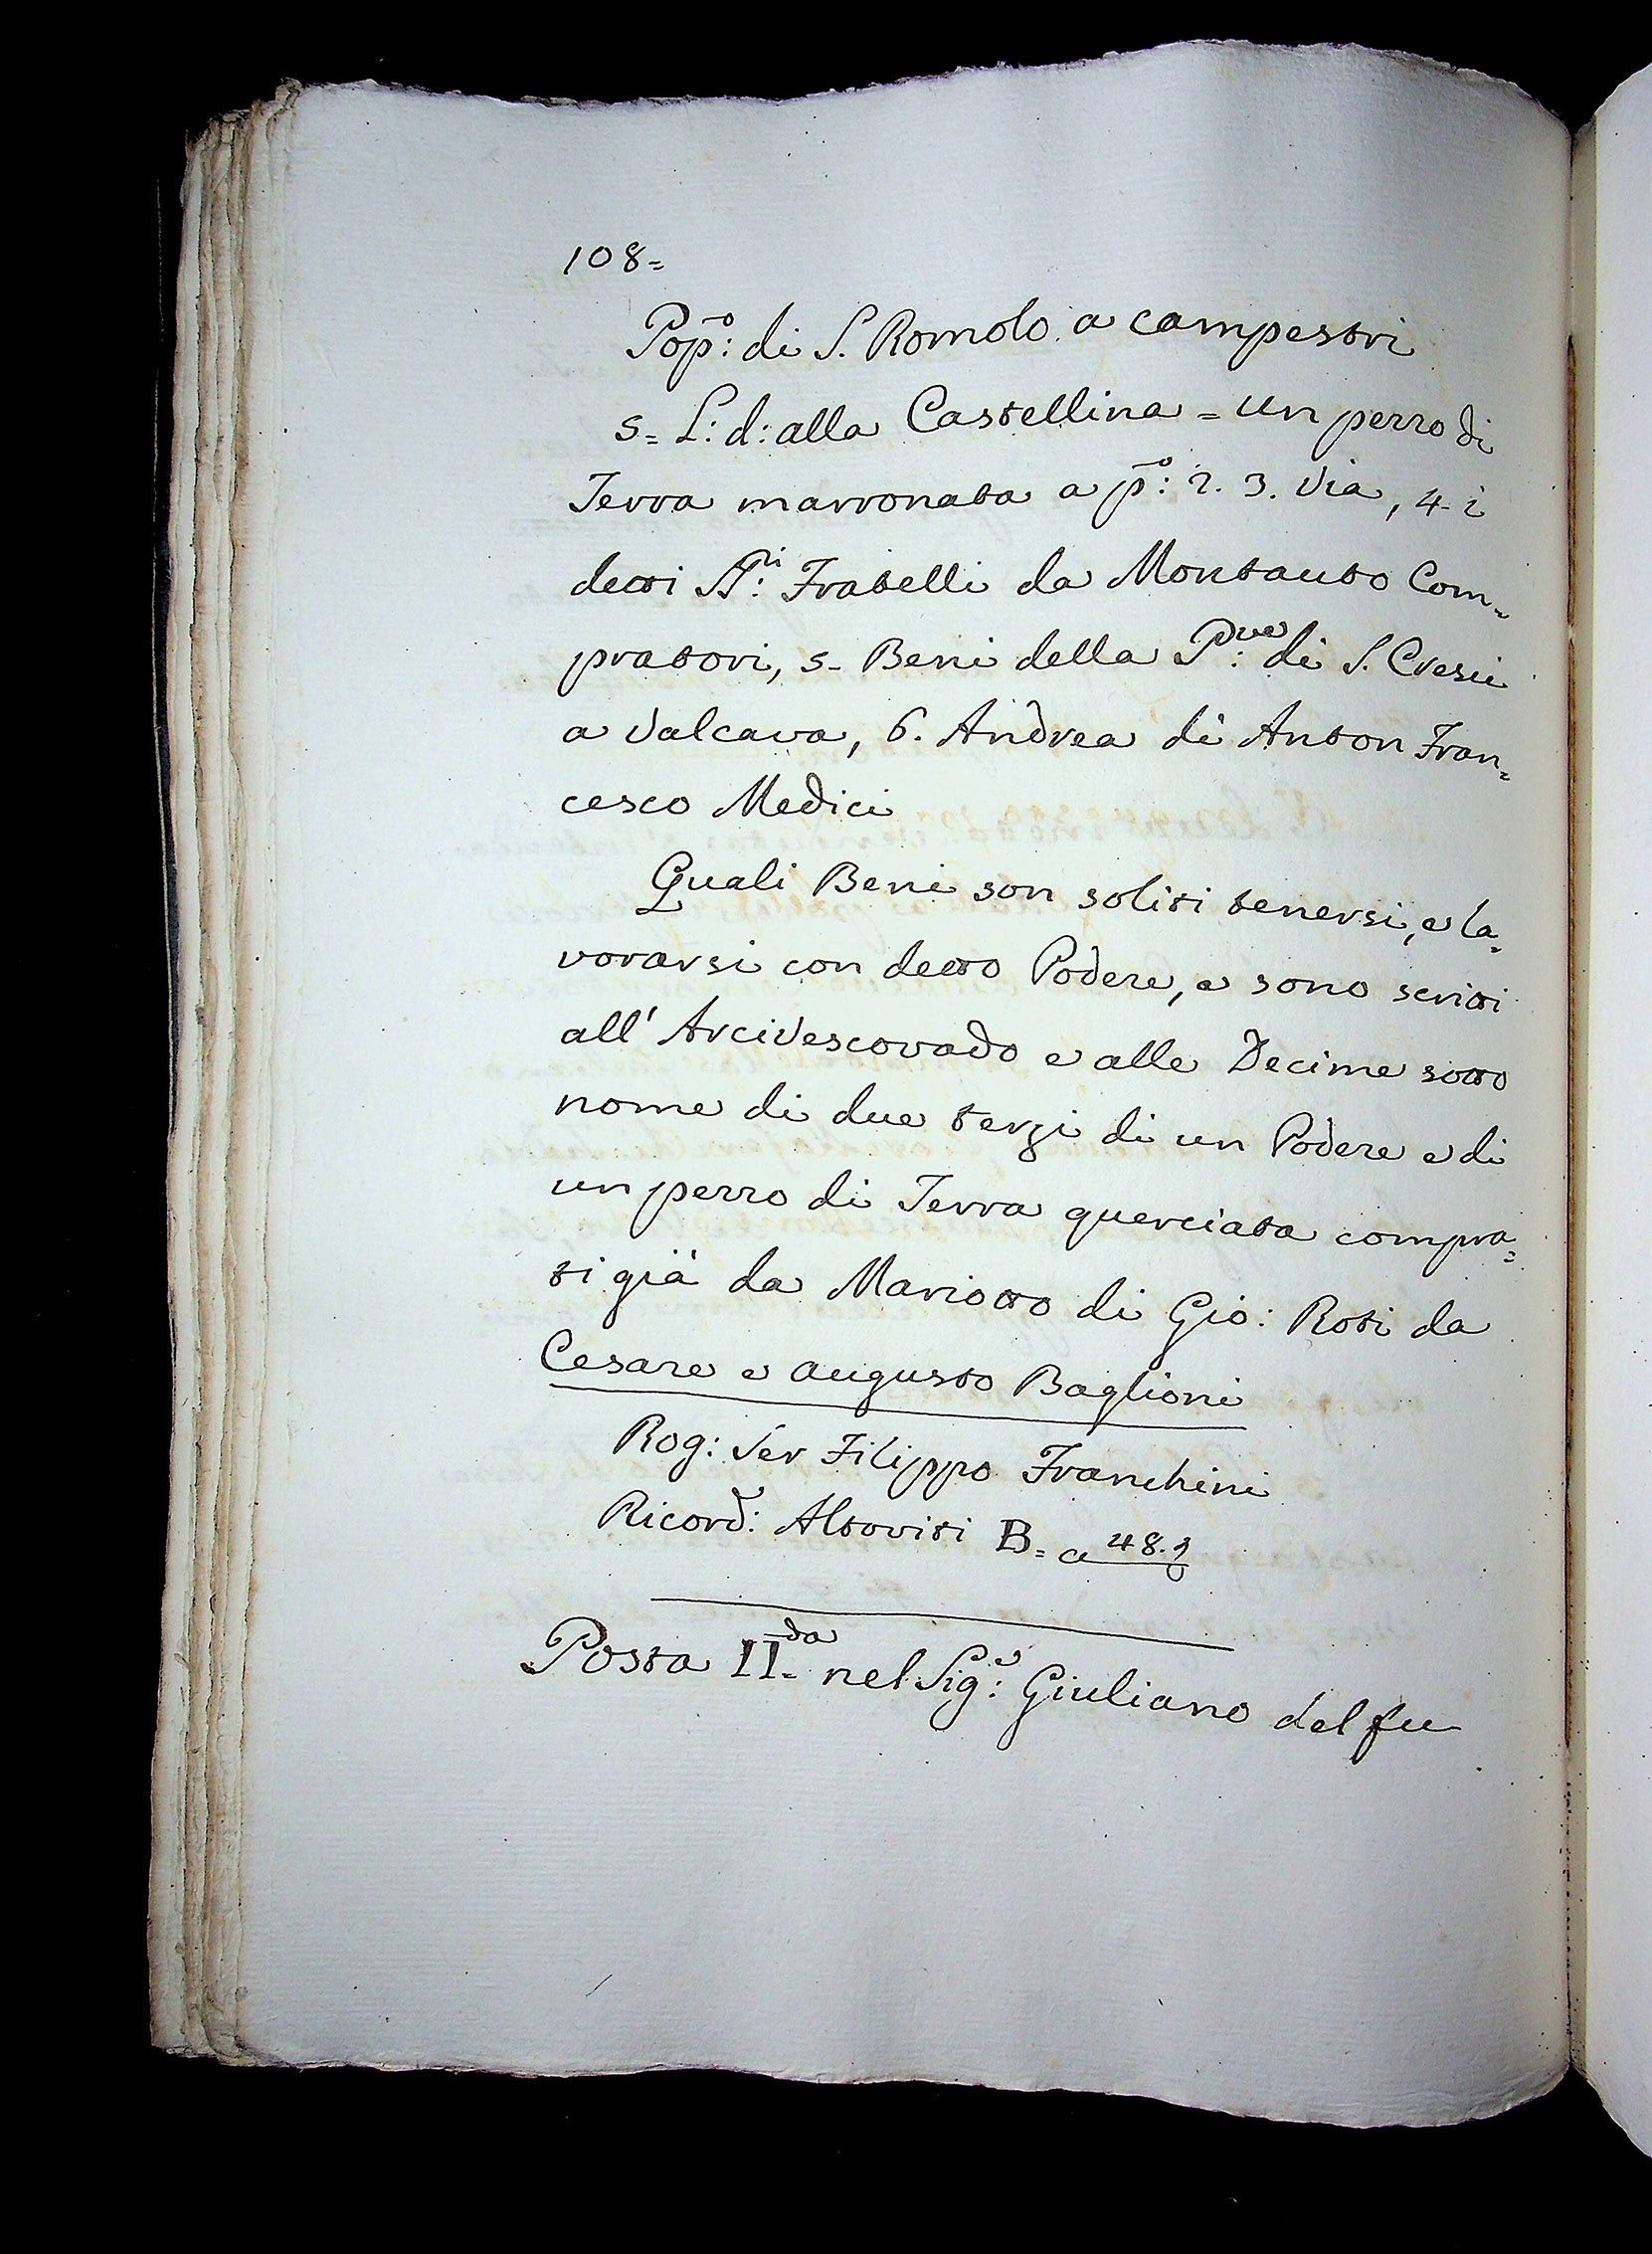 108=
Pop:º di S. Romolo a campestri
5= L: d: alla Castellina = Un pezzo di
Terra marronata a p:º 2. 3. Via, 4. i
detti SS:ri Fratelli da Montauto Com=
pratori, 5. Beni della P:ve di S. Cresci
a Valcava, 6. Andrea di Anton Fran=
cesco Medici
Quali Beni son soliti tenersi, e la=
vorarsi con detto Podere, e sono scritti
all' Arcivescovado e alle Decime sotto
nome di due terzi di un Podere e di
un pezzo di Terra querciata compra=
ti già da Mariotto di Gio: Roti da
Cesare e Augusto Baglioni
Rog: Ser Filippo Franchini
Ricord: Altoviti B= a 48.
Posta II=da nel Sig:e Giuliano del fu